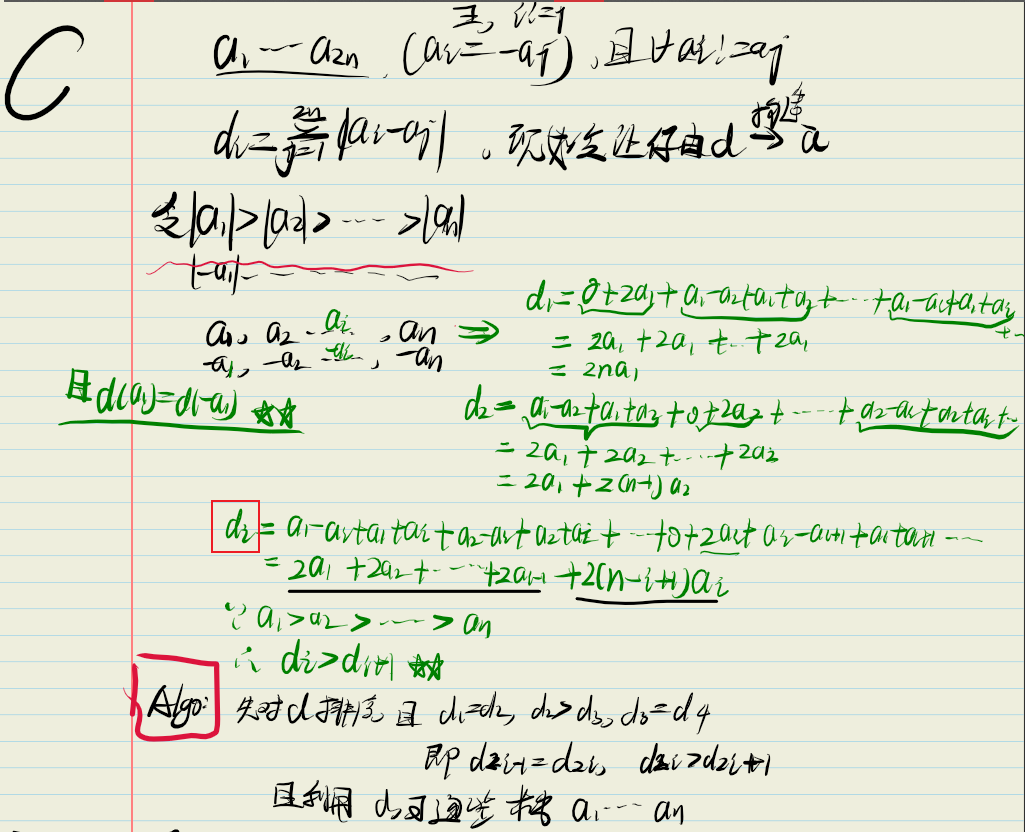 C
∃, i!=j
a₁ ⋯ a₂ₙ, (aᵢ = -aⱼ), 且∀ aᵢ != aⱼ
dᵢ = Σ_{j=1}^{2n} |aᵢ - aⱼ|。现给定 d →(构造) a
|a₁| > |a₂| > ⋯ > |aₙ|
|-a₁| - - - - -
a₁, a₂ ⋯ aᵢ, aₙ ⇒
-a₁, -a₂ -aᵢ, -aₙ
且 d(a₁) = d(-a₁) ☆☆
d₁ = 0+2a₁ + a₁-a₂+a₁+a₂ + ⋯ + a₁-aᵢ+a₁+aᵢ + ⋯
= 2a₁ + 2a₁ + ⋯ + 2a₁
= 2na₁
d₂ = a₁-a₂+a₁+a₂ + 0+2a₂ + ⋯ + a₂-aᵢ+a₂+aᵢ+⋯
= 2a₁ + 2a₂ + ⋯ + 2a₂
= 2a₁ + 2(n-1)a₂
dᵢ = a₁-aᵢ+a₁+aᵢ + a₂-aᵢ+a₂+aᵢ + ⋯ + 0+2aᵢ + aᵢ-aᵢ₊₁+aᵢ+aᵢ₊₁ ⋯
= 2a₁ + 2a₂ + ⋯ + 2aᵢ₋₁ + 2(n-i+1)aᵢ
∵ a₁ > a₂ > ⋯ > aₙ
∴ dᵢ > dᵢ₊₁ ☆☆
Algo: 先对d排序 且 d₁=d₂, d₂>d₃, d₃=d₄
即 d₂ᵢ₋₁ = d₂ᵢ, d₂ᵢ > d₂ᵢ₊₁
且利用 dᵢ可 求 a₁ ⋯ aₙ